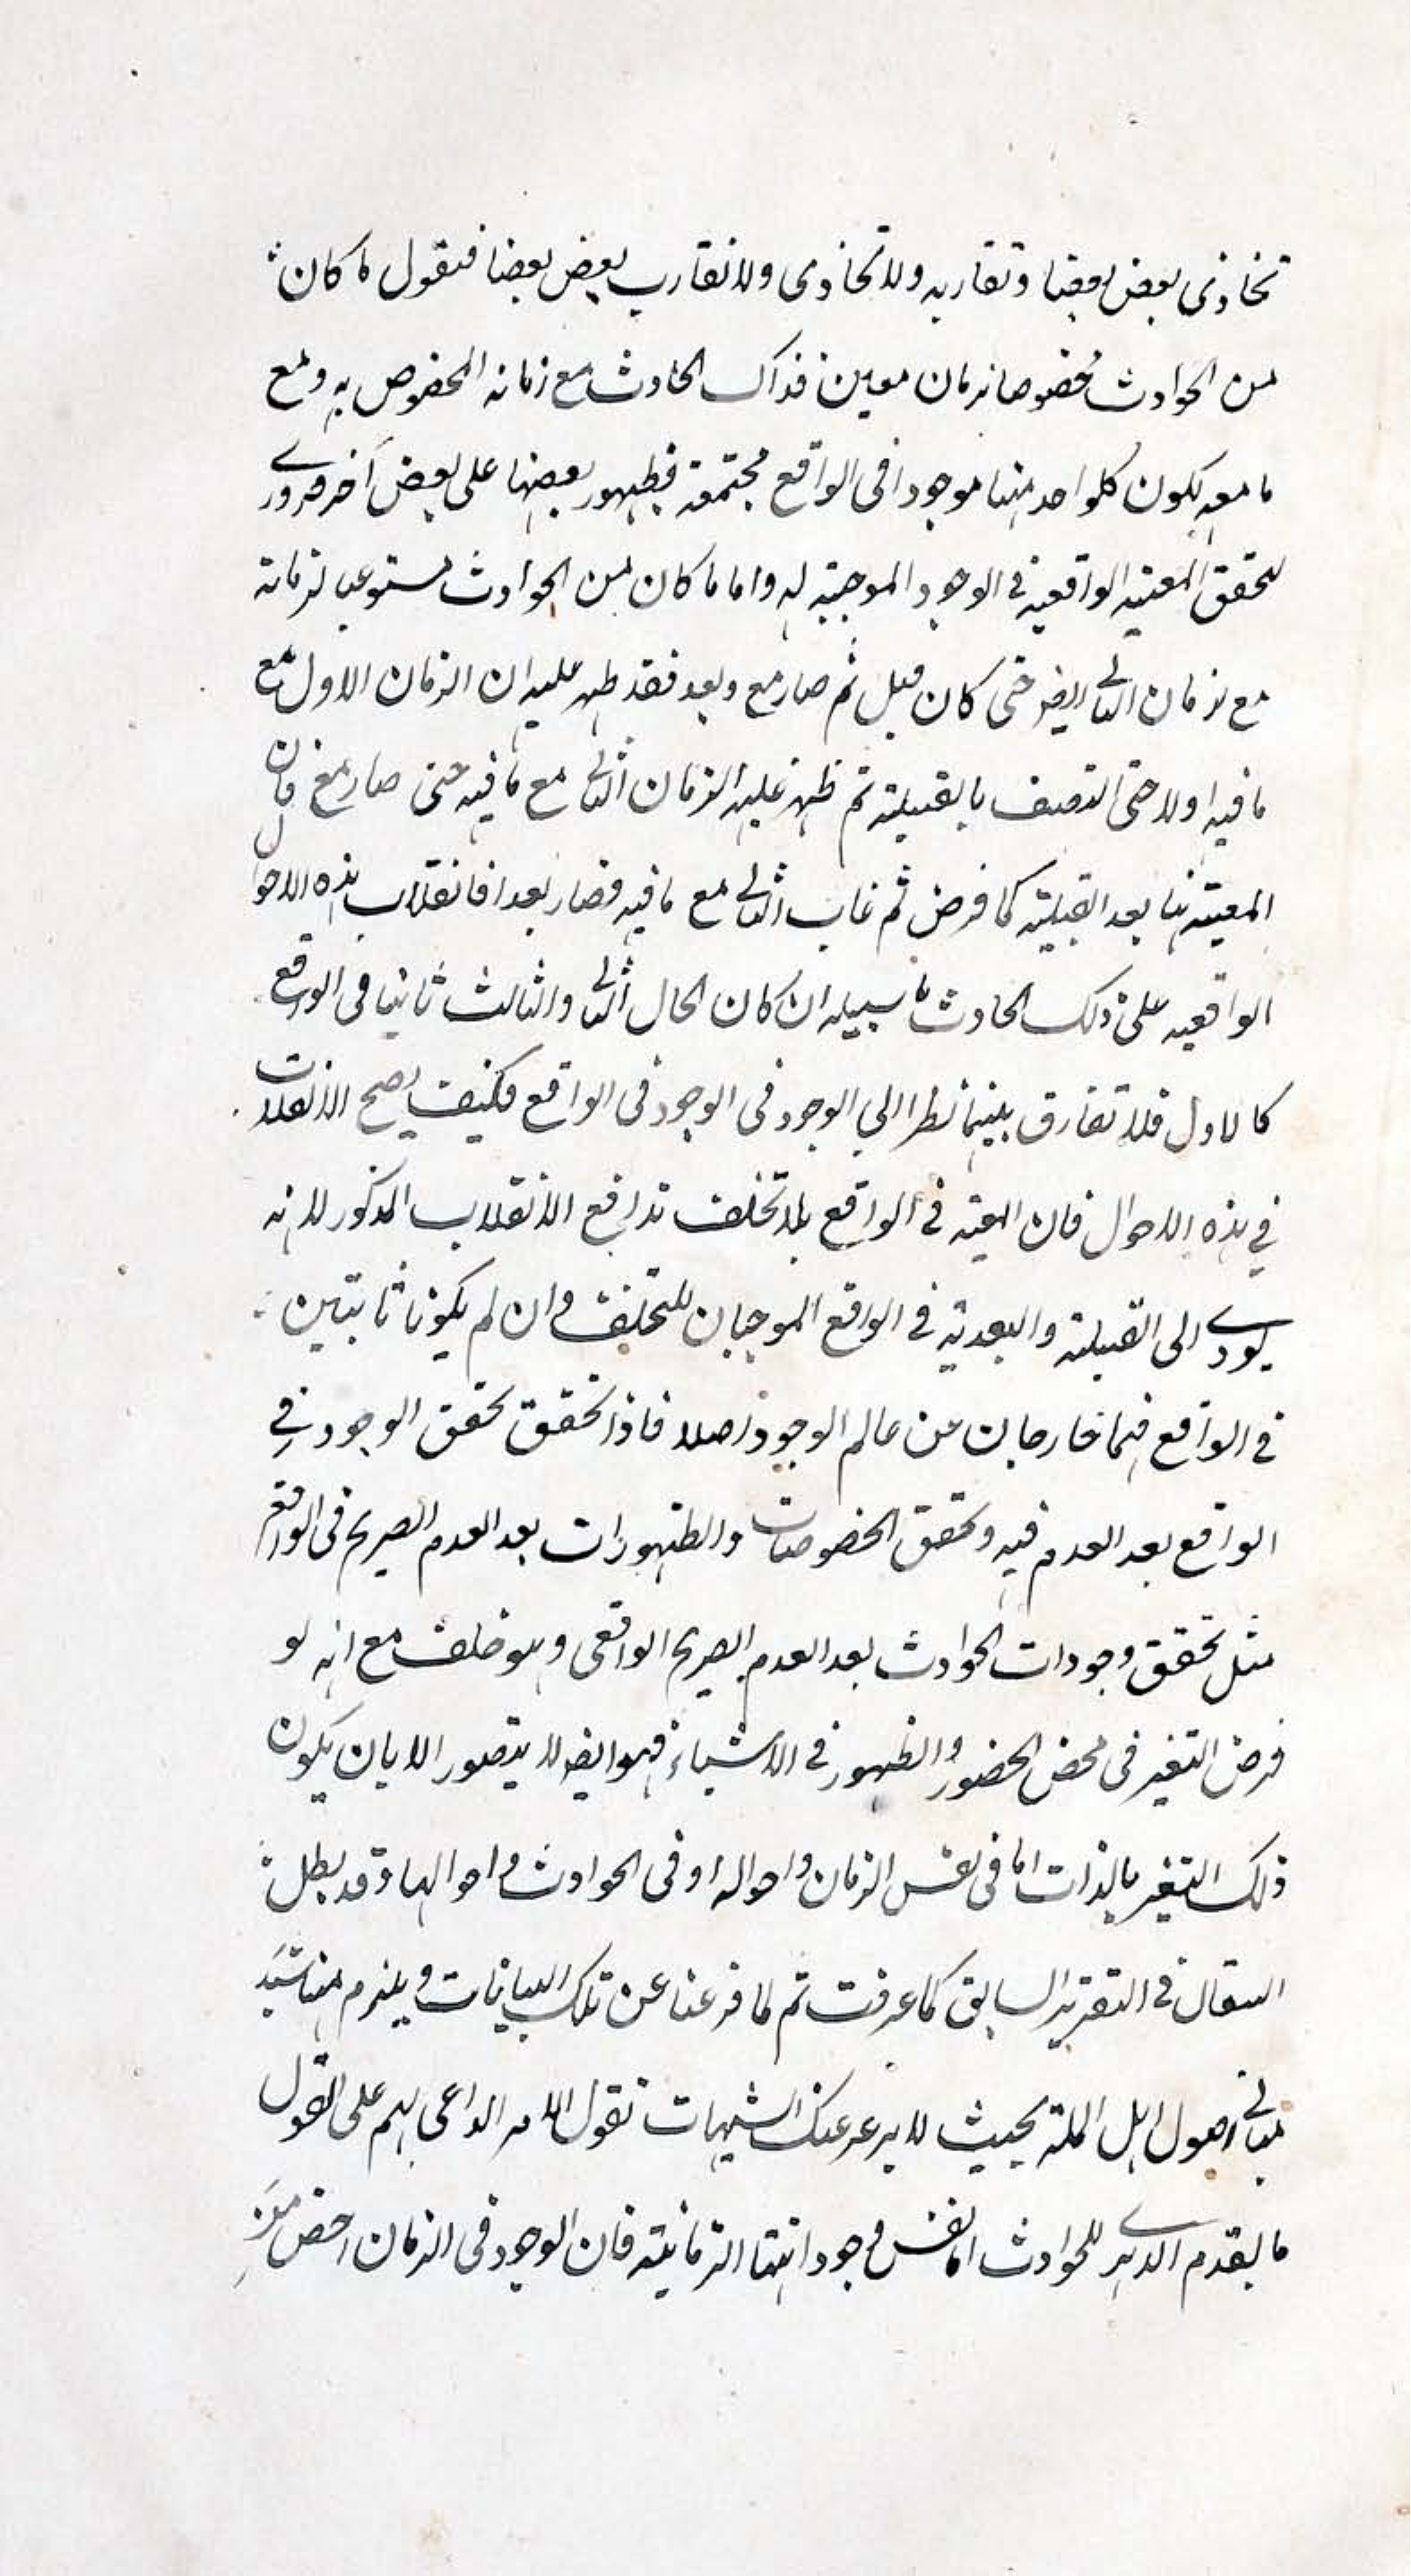 تحاذى بعض بعضا وتقاربه ولا تحاذى ولا تقارب بعض بعضا فنقول ما كان
من الحوادث مخصوصا بزمان معين فذاك الحادث مع زمانه المخصوص به ومع
ما معه يكون كلواحد منها موجودا فى الواقع مجتمعة فظهور بعضها على بعض آخر ضرورى
لتحقق المعية الواقعيه فى الوجود الموجبة له واما ما كان من الحوادث مستوعبا لزمانه
مع زمان الثانى ايضا حتى كان قبل ثم صار مع وبعد فقد ظهر عليه ان الزمان الاول مع
ما فيه اولا حتى اتصف بالقبلية ثم ظهر عليه الزمان الثانى مع ما فيه حتى صار مع فان
المعية هنا بعد القبلية كما فرض ثم غاب الثانى مع ما فيه فصار بعدا فانقلاب هذه الاحوال
الواقعيه على ذلك الحادث ما سبيله ان كان الحال الثانى والثالث ثابتا فى الواقع
كالاول فلا تفارق بينهما نظرا الى الوجود فى الوجود فى الواقع فكيف يصح الانقلاب
فى هذه الاحوال فان المعية فى الواقع بلا تخلف تدافع الانقلاب المذكور لانه
يودى الى القبلية والبعدية فى الواقع الموجبان للتخلف وان لم يكونا ثابتين
فى الواقع فهما خارجان من عالم الوجود اصلا فاذا تحقق تحقق الوجود فى
الواقع بعد العدم فيه وتحقق الخصوصات والظهورات بعد العدم الصريح فى الواقع
مثل تحقق وجودات الحوادث بعد العدم الصريح الواقعى وهو خلف مع انه لو
فرض التغير فى محض الحضور والظهور فى الاشياء فهو ايضا لا يتصور الا بان يكون
ذلك التغير بالذات اما فى نفس الزمان واحواله او فى الحوادث واحوالها وقد بطل
السقان فى التقرير السابق كما عرفت ثم لما فرغنا عن تلك البيانات ويلزم منها تشيد
مبانى اصول اهل الملة بحيث لا يرعرعنك الشبهات نقول الامر الداعى لهم على القول
بالقدم الدهرى للحوادث اما نفس وجوداتها الزمانية فان الوجود فى الزمان اخص من